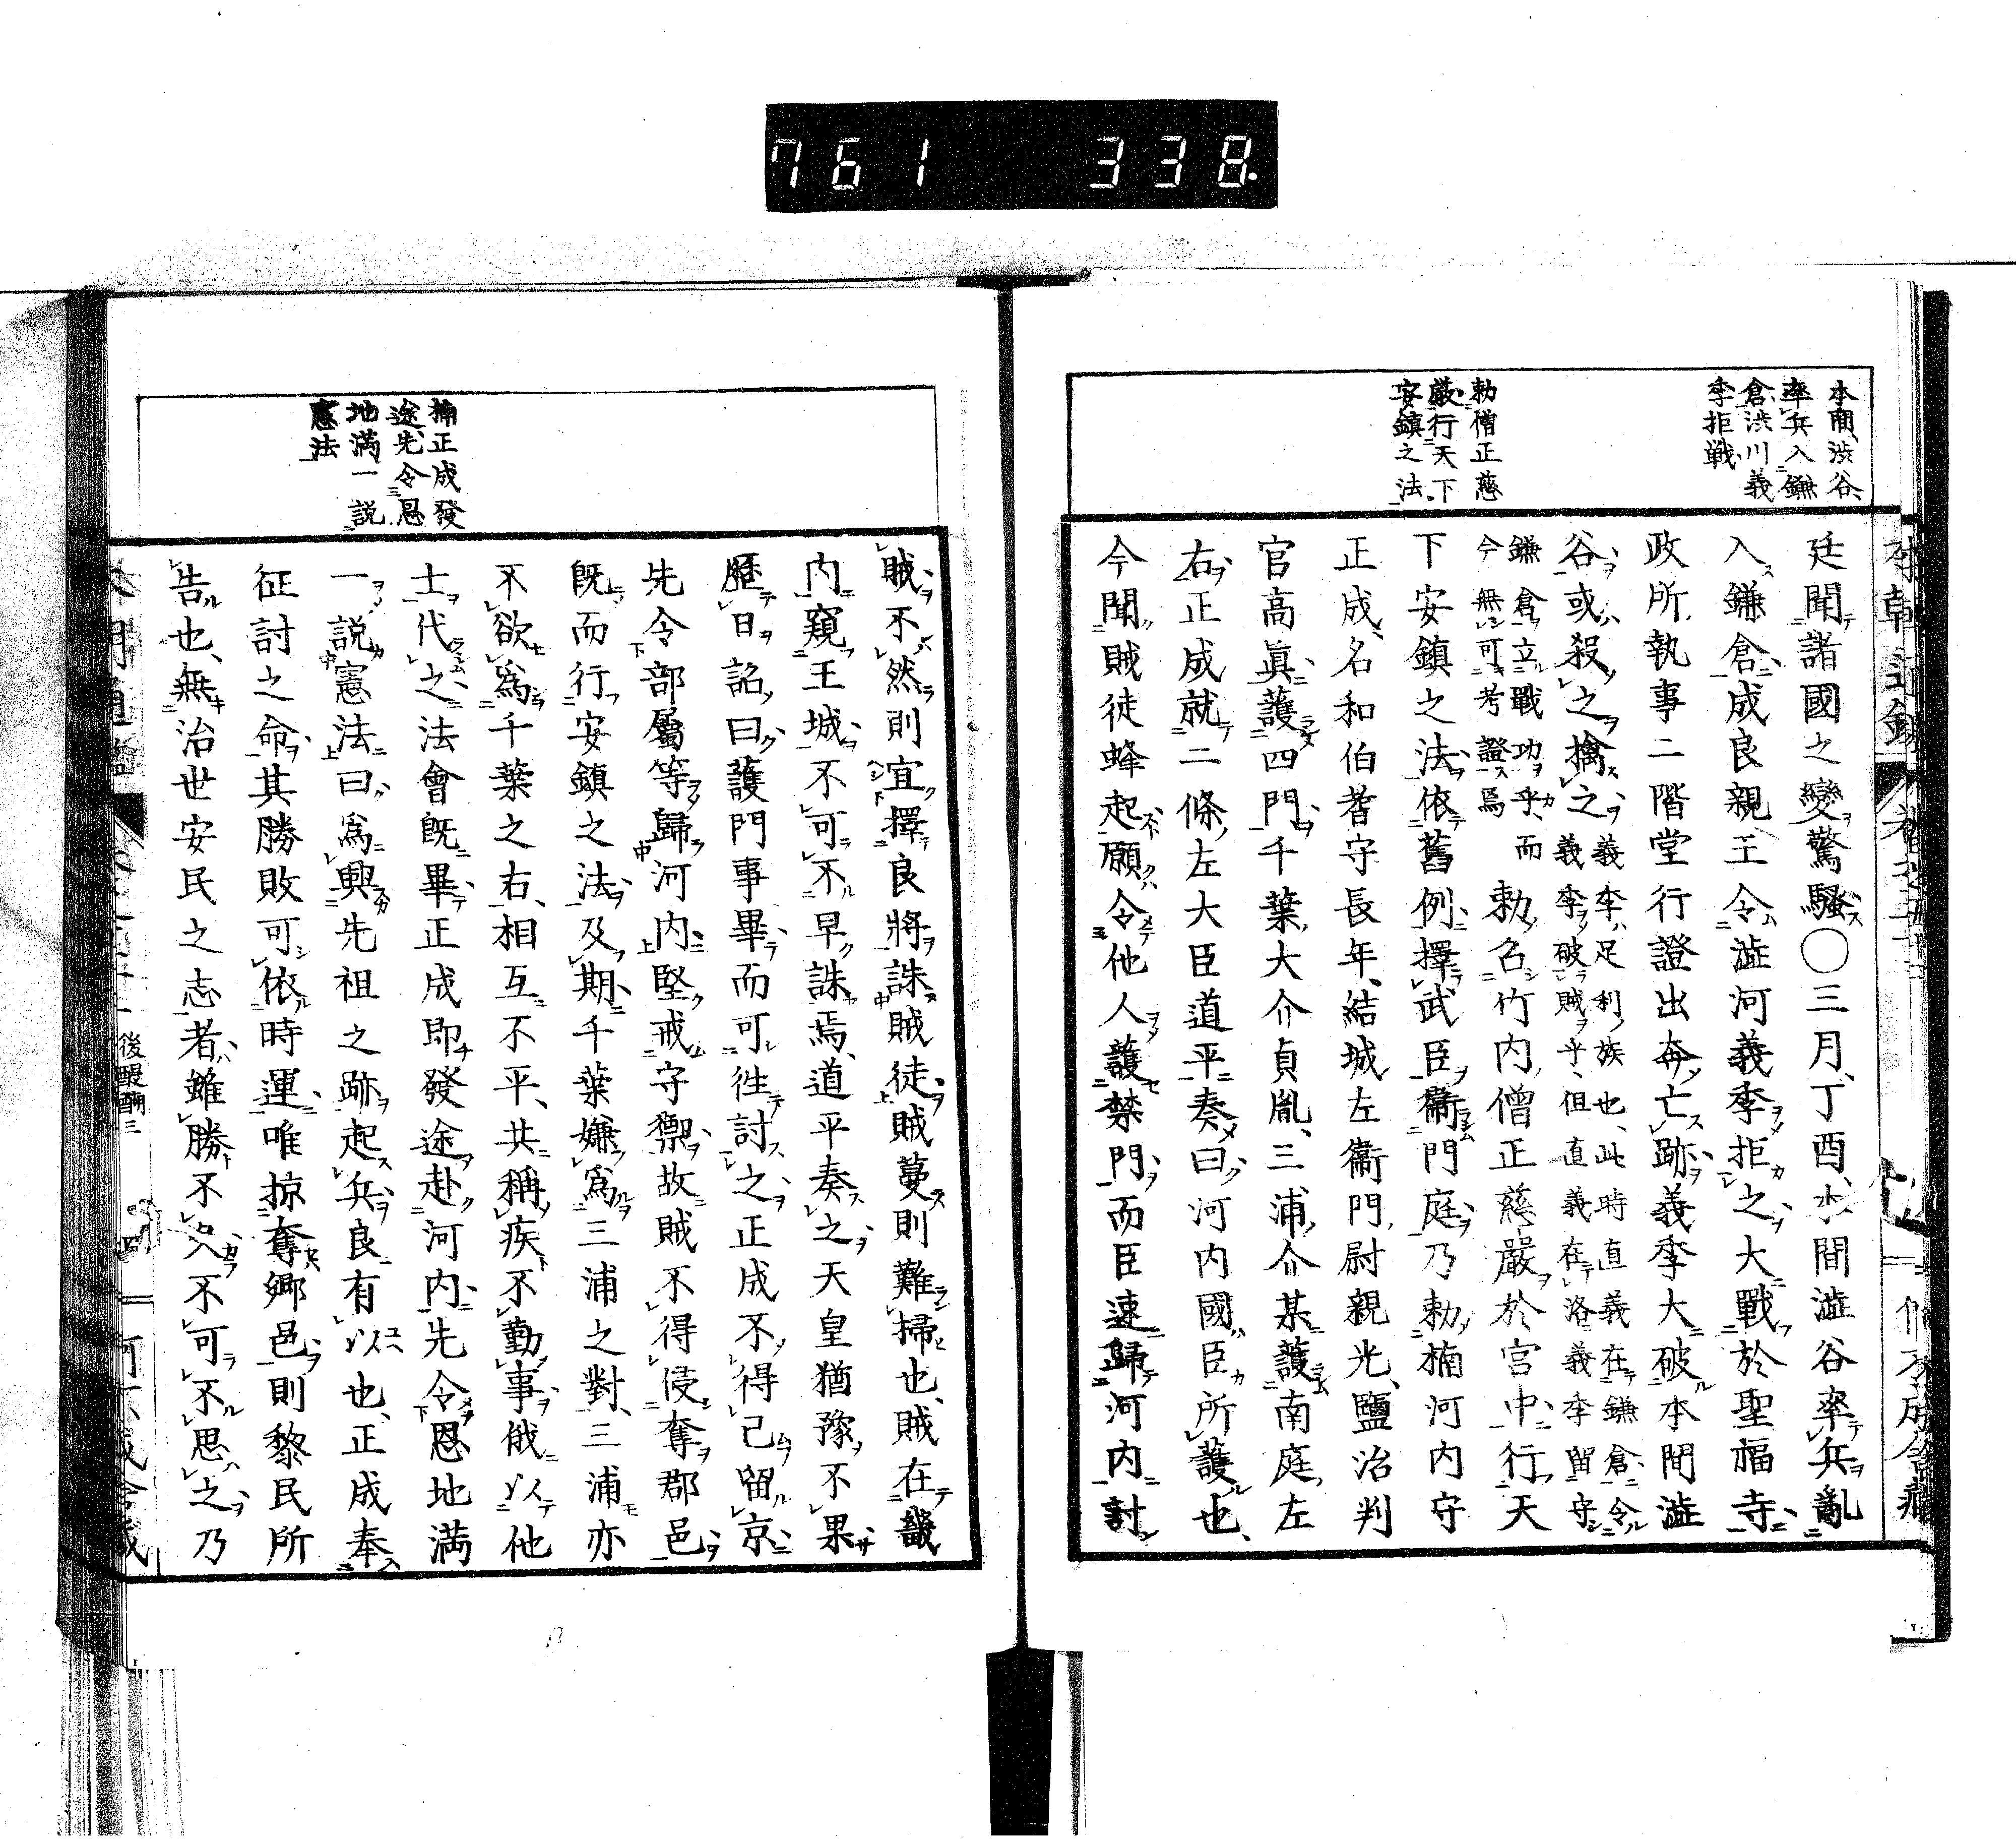 761 338.
本間、渋谷、
率兵入鎌
倉渋川義
季拒戦
勅僧正慈
嚴行天下
安鎮之法
廷聞諸國之變驚騷〇三月丁酉、本間澁谷率兵亂
入鎌倉成良親王令澁河義季拒之大戰於聖福寺
政所執事二階堂行證出奔亡跡義季大破本間澁
谷或殺之擒之義季、足利族也、此時直義在鎌倉、令
義季破賊乎、但直義在洛義季留守
鎌倉立戰功乎、而
今無可考證焉
勅召竹内僧正慈嚴於宮中行天
下安鎮之法依舊例擇武臣衞門庭乃勅楠河内守
正成、名和伯耆守長年、結城左衞門尉親光、鹽冶判
官高眞護四門千葉大介貞胤、三浦介某護南庭左
右正成就二條左大臣道平奏曰河内國臣所護也、
今聞賊徒蜂起願令他人護禁門而臣速歸河内討
楠正成發
途先令恩
地満一説
憲法
賊不然則宜擇良將誅賊徒賊蔓則難掃也、賊在畿
内窺王城不可不早誅焉、道平奏之天皇猶豫不果
歷日詔曰護門事畢而可徃討之正成不得已留京
先令部屬等歸河内堅戒守禦故賊不得侵奪郡邑
既而行安鎮之法及期千葉嫌爲三浦之對、三浦亦
不欲爲千葉之右、相互不平、共稱疾不勤事俄以他
士代之法會既畢正成即發途赴河内先令恩地満
一説憲法曰爲興先祖之跡起兵良有以也、正成奉
征討之命其勝敗可依時運唯掠奪鄉邑則黎民所
告也、無治世安民之志者雖勝不久不可不思之乃
後醍醐三
四